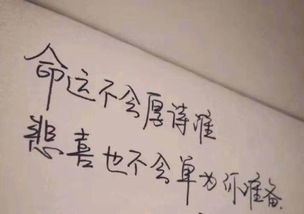 命运不会厚待谁
悲喜也不会单为你准备